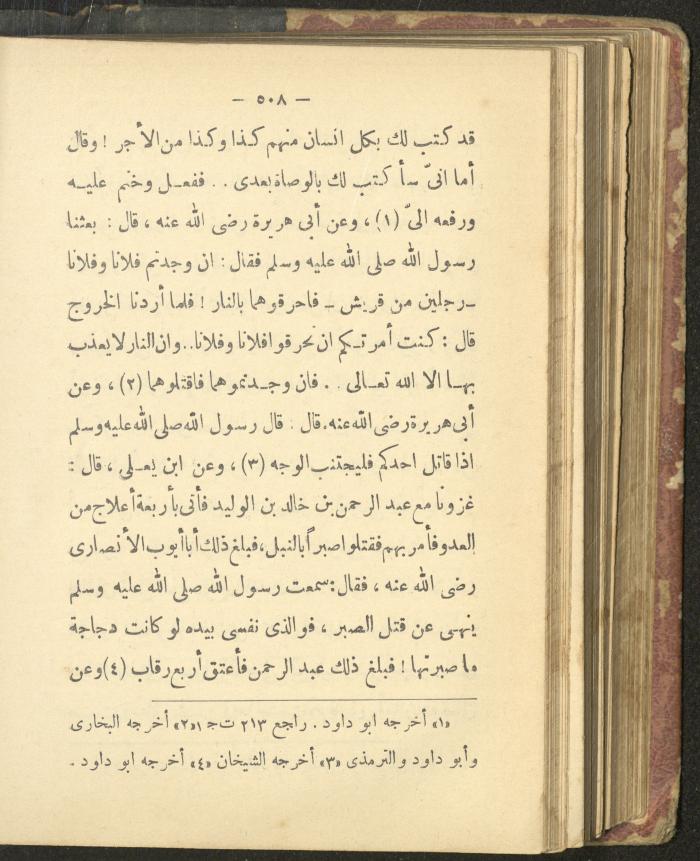 — ٥٠٨ —
قد كتب لك بكل انسان منهم كذا وكذا من الأجر ! وقال
أما انىّ سأ كتب لك بالوصاة بعدى . . ففعل وختم عليه
ورفعه الىّ (١) ، وعن أبى هريرة رضى الله عنه ، قال : بعثنا
رسول الله صلى الله عليه وسلم فقال : ان وجدتم فلانا وفلانا
ـ رجلين من قريش ـ فاحرقوهما بالنار ! فلما أردنا الخروج
قال : كنت أمرتكم ان تحرقوا فلانا وفلانا . . وان النار لا يعذب
بها الا الله تعالى . . فان وجدتموهما فاقتلوهما (٢) ، وعن
أبى هريرة رضى الله عنه . قال : قال رسول الله صلى الله عليه وسلم
اذا قاتل احدكم فليجتنب الوجه (٣) ، وعن ابن يعلى ، قال :
غزونا مع عبد الرحمن بن خالد بن الوليد فأتى بأربعة أعلاج من
العدو فأمر بهم فقتلوا صبراً بالنبل ، فبلغ ذلك أبا أيوب الأنصارى
رضى الله عنه ، فقال : سمعت رسول الله صلى الله عليه وسلم
ينهى عن قتل الصبر ، فوالذى نفسى بيده لو كانت دجاجة
ما صبرتها ! فبلغ ذلك عبد الرحمن فأعتق أربع رقاب (٤) وعن
«١» أخرجه ابو داود . راجع ٢١٣ ت ج ١ «٢» أخرجه البخارى
وأبو داود والترمذى «٣» أخرجه الشيخان «٤» أخرجه ابو داود .